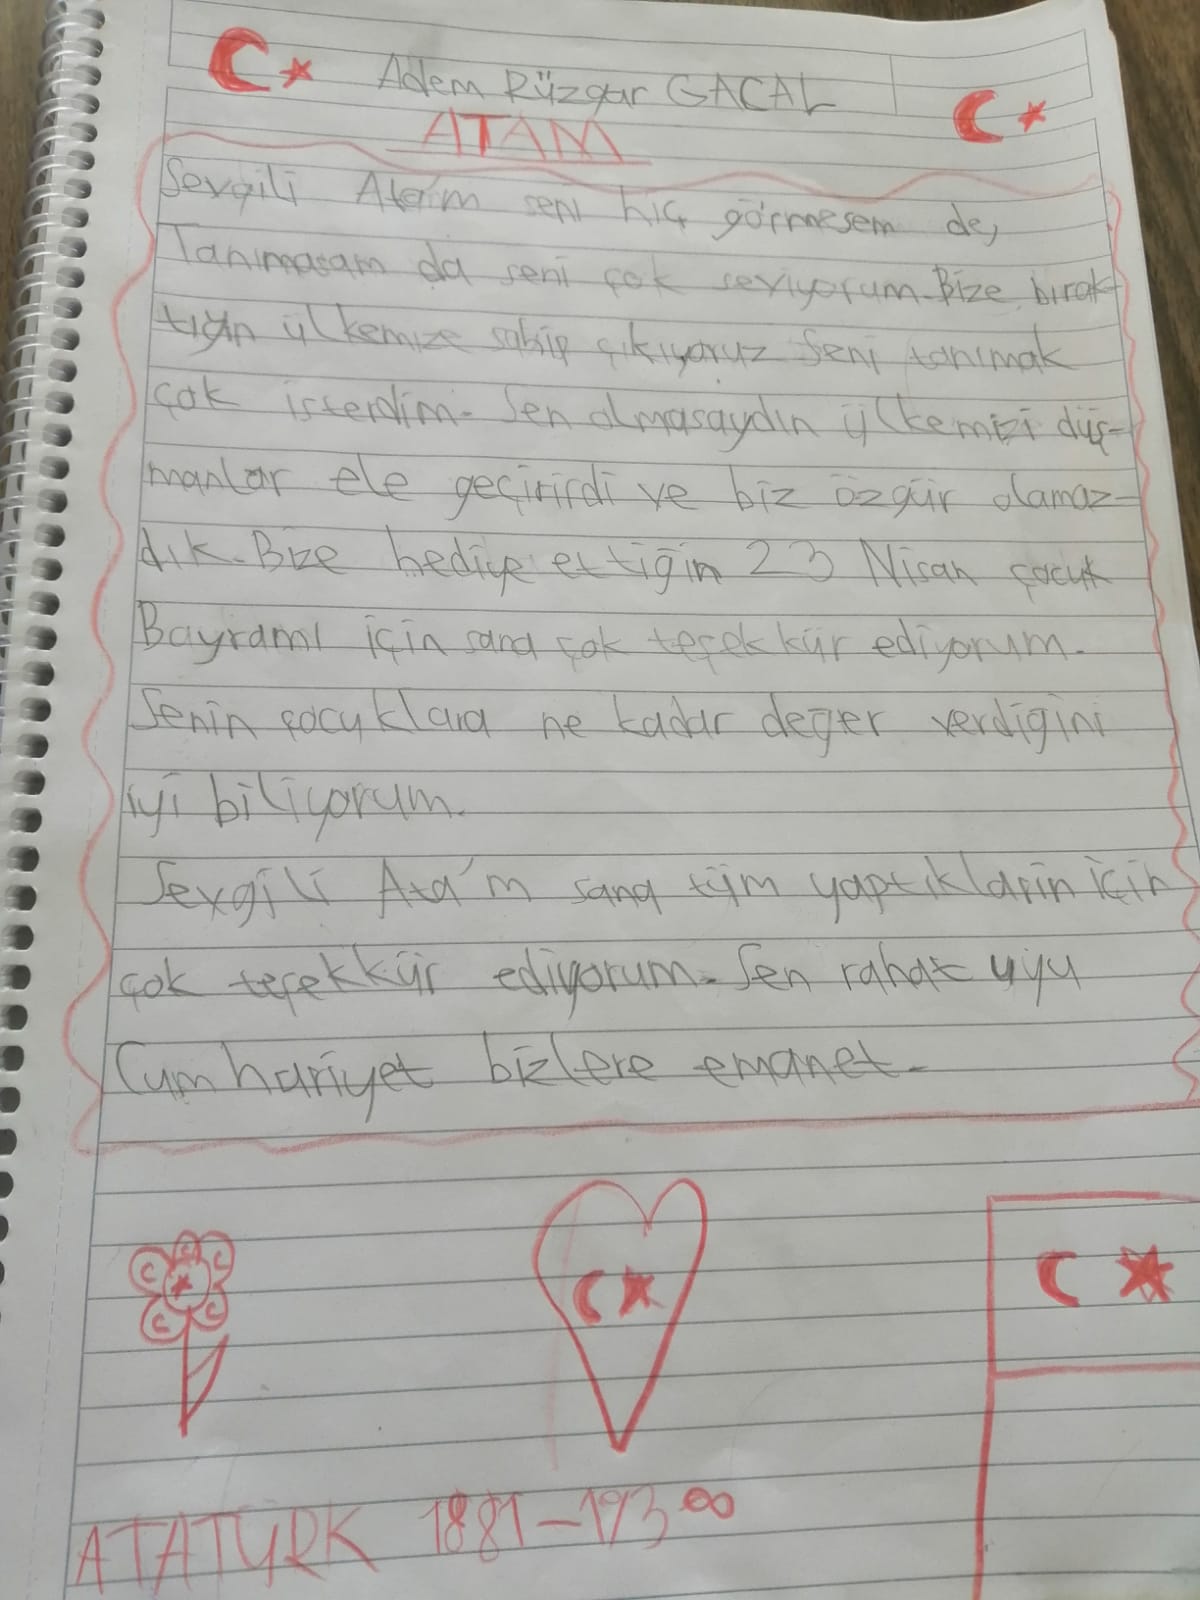 Adem Rüzgar GACAL
ATAM
Sevgili Ata'm seni hiç görmesem de,
Tanımasam da seni çok seviyorum. Bize bırak
tığın ülkemize sahip çıkıyoruz seni tanımak
çok isterdim. Sen olmasaydın ülkemizi düş-
manlar ele geçirirdi ve biz özgür olamaz-
dık. Bize hediye ettiğin 23 Nisan çocuk
Bayramı için sana çok teşekkür ediyorum.
Senin çocuklara ne kadar değer verdiğini
iyi biliyorum.
Sevgili Ata'm sana tüm yaptıkların için
çok teşekkür ediyorum. Sen rahat uyu
Cumhuriyet bizlere emanet.
ATATÜRK 1881-193∞